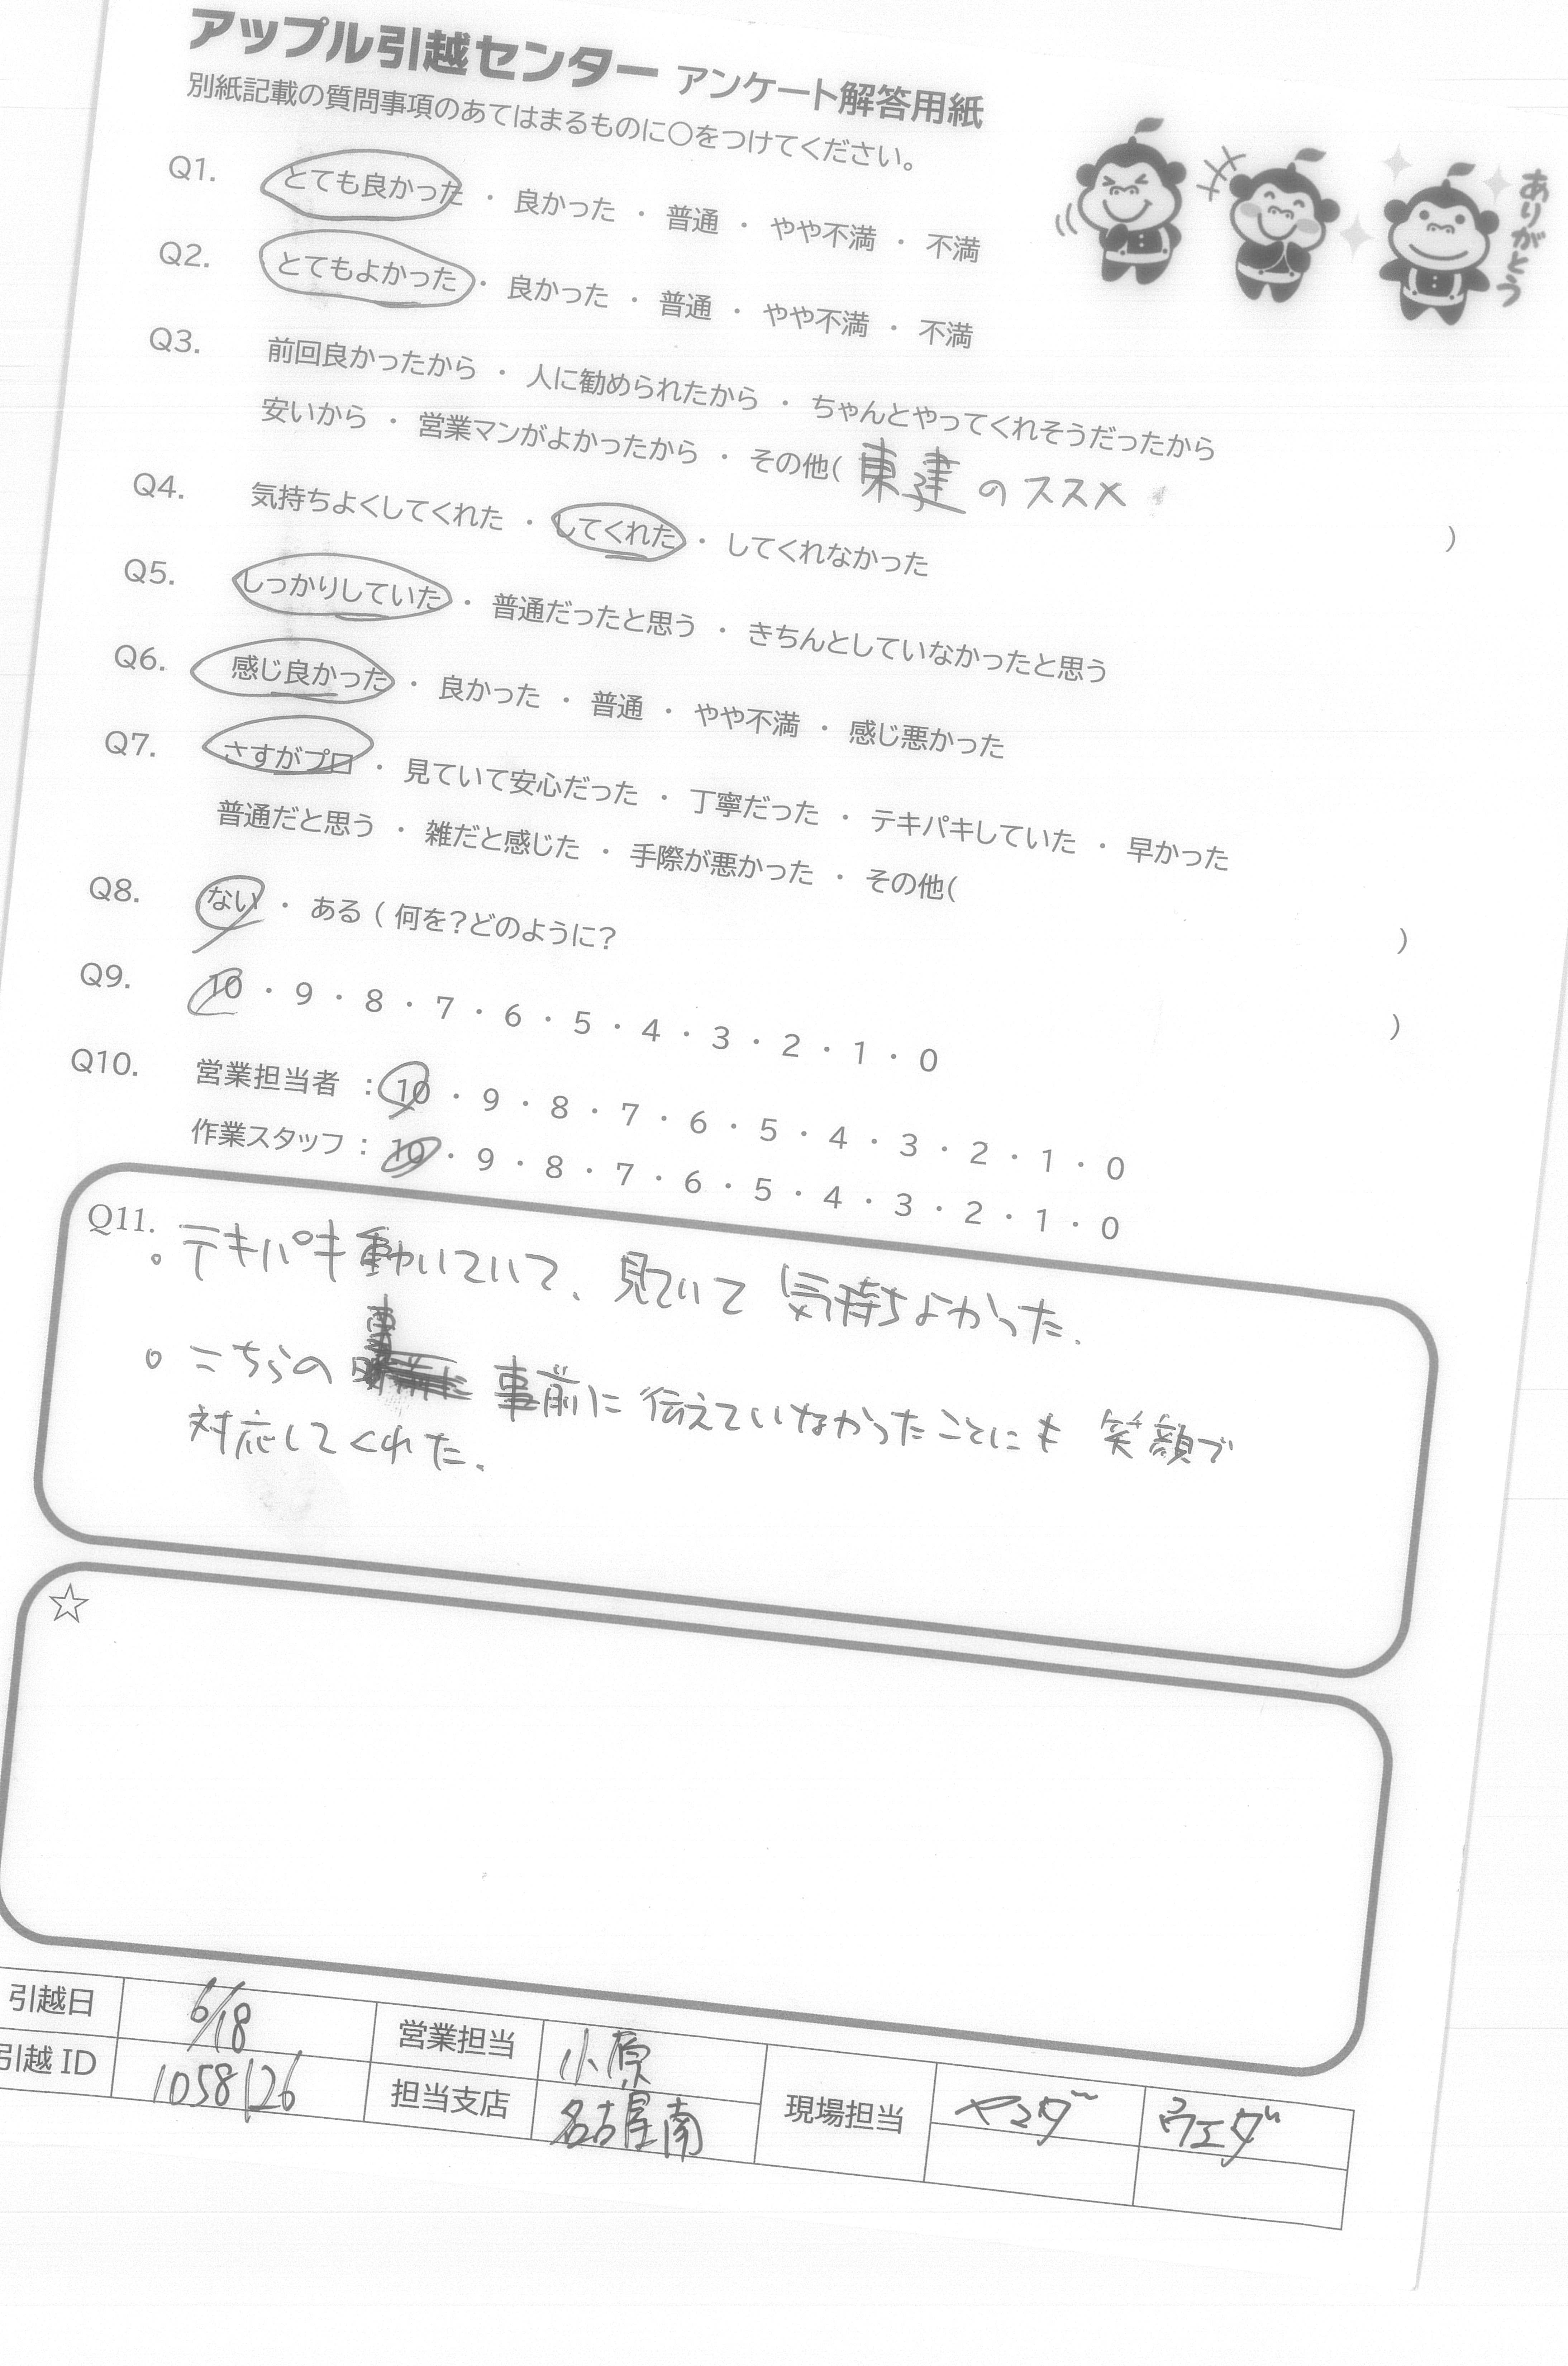 アップル引越センター アンケート解答用紙
別紙記載の質問事項のあてはまるものに○をつけてください。
ありがとう
Q1. とても良かった ・ 良かった ・ 普通 ・ やや不満 ・ 不満
Q2. とてもよかった ・ 良かった ・ 普通 ・ やや不満 ・ 不満
Q3. 前回良かったから ・ 人に勧められたから ・ ちゃんとやってくれそうだったから
安いから ・ 営業マンがよかったから ・ その他( 東建のススメ )
Q4. 気持ちよくしてくれた ・ してくれた ・ してくれなかった
Q5. しっかりしていた ・ 普通だったと思う ・ きちんとしていなかったと思う
Q6. 感じ良かった ・ 良かった ・ 普通 ・ やや不満 ・ 感じ悪かった
Q7. さすがプロ ・ 見ていて安心だった ・ 丁寧だった ・ テキパキしていた ・ 早かった
普通だと思う ・ 雑だと感じた ・ 手際が悪かった ・ その他( )
Q8. ない ・ ある ( 何を?どのように? )
Q9. 10 ・ 9 ・ 8 ・ 7 ・ 6 ・ 5 ・ 4 ・ 3 ・ 2 ・ 1 ・ 0
Q10. 営業担当者 : 10 ・ 9 ・ 8 ・ 7 ・ 6 ・ 5 ・ 4 ・ 3 ・ 2 ・ 1 ・ 0
作業スタッフ : 10 ・ 9 ・ 8 ・ 7 ・ 6 ・ 5 ・ 4 ・ 3 ・ 2 ・ 1 ・ 0
Q11.
。テキパキ動いていて、見ていて気持ちよかった.
。こちらの 事前に伝えていなかったことにも 笑顔で
対応してくれた.
☆
引越日 6/18 営業担当 小原 現場担当 ヤマダ ウエダ
引越 ID 1058126 担当支店 名古屋南